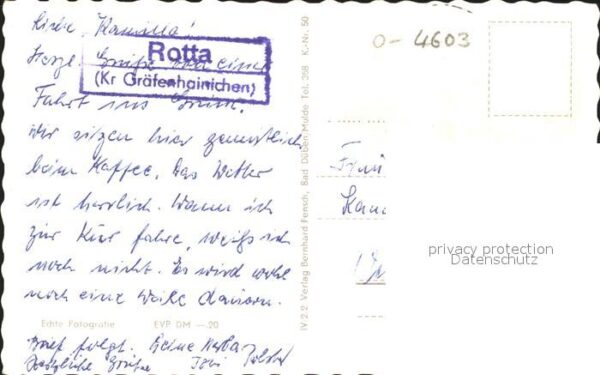 Liebe Kamilla!
Rotta
(Kr Gräfenhainichen)
Herzl. Grüße von einer
Fahrt ins Grüne.
Wir sitzen hier gemütlich
beim Kaffee. Das Wetter
ist herrlich. Wann ich
zur Kur fahre, weiß ich
noch nicht. Es wird wohl
noch eine Weile dauern.
Echte Fotografie EVP DM —20
Brief folgt. Deine
Herzliche Grüße
IV.2.2 Verlag Bernhard Fensch, Bad Düben-Mulde Tel. 268 K-Nr. 50
0-4603
Frau
privacy protection
Datenschutz